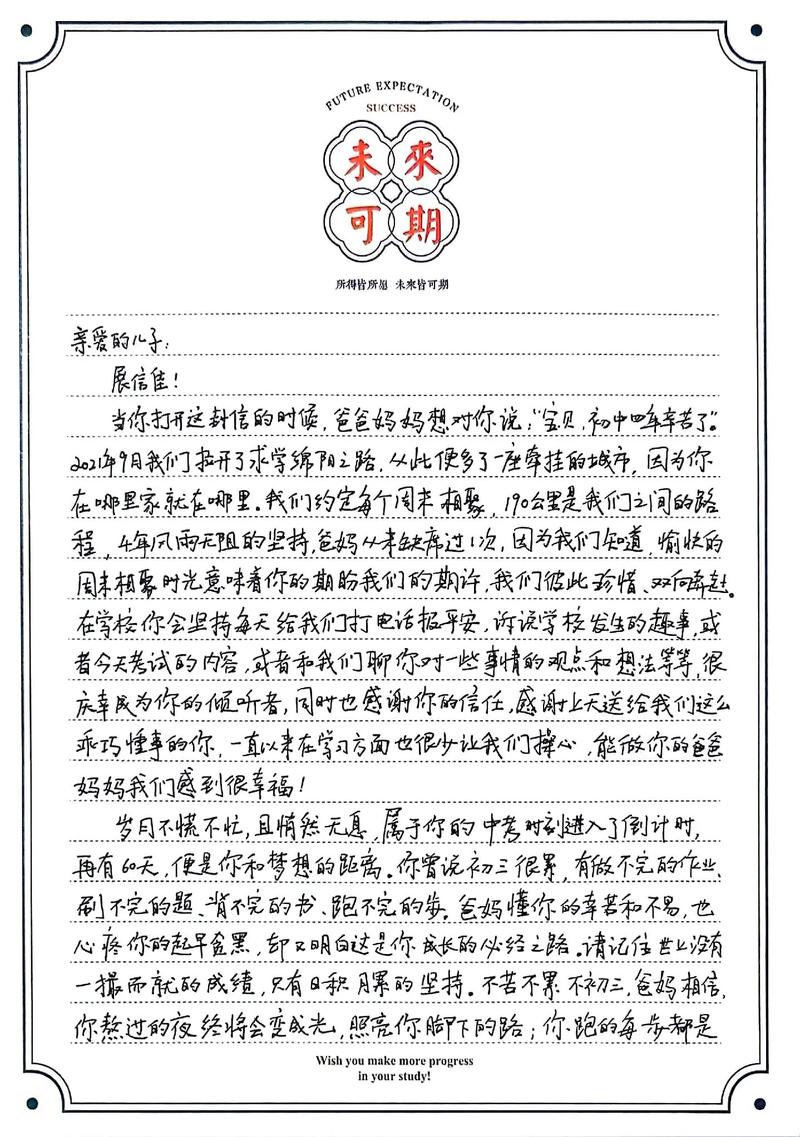 FUTURE EXPECTATION
SUCCESS
未來
可期
所得皆所愿 未来皆可期
亲爱的儿子：
展信佳！
当你打开这封信的时候，爸爸妈妈想对你说："宝贝，初中四年辛苦了"。
2021年9月我们拉开了求学绵阳之路，从此便多了一座牵挂的城市，因为你
在哪里家就在哪里。我们约定每个周末相聚，190公里是我们之间的路
程，4年风雨无阻的坚持，爸妈从未缺席过1次，因为我们知道，愉快的
周末相聚时光意味着你的期盼我们的期许，我们彼此珍惜、双向奔赴。
在学校你会坚持每天给我们打电话报平安，诉说学校发生的趣事，或
者今天考试的内容，或者和我们聊你对一些事情的观点和想法等等，很
庆幸成为你的倾听者，同时也感谢你的信任，感谢上天送给我们这么
乖巧懂事的你，一直以来在学习方面也很少让我们操心，能做你的爸爸
妈妈我们感到很幸福！
岁月不慌不忙，且悄然无息，属于你的中考时刻进入了倒计时，
再有60天，便是你和梦想的距离。你曾说初三很累，有做不完的作业、
刷不完的题、背不完的书、跑不完的步。爸妈懂你的辛苦和不易，也
心疼你的起早贪黑，却又明白这是你成长的必经之路。请记住世上没有
一撮而就的成绩，只有日积月累的坚持。不苦不累不初三，爸妈相信，
你熬过的夜终将会变成光，照亮你脚下的路；你跑的每步都是
Wish you make more progress
in your study!